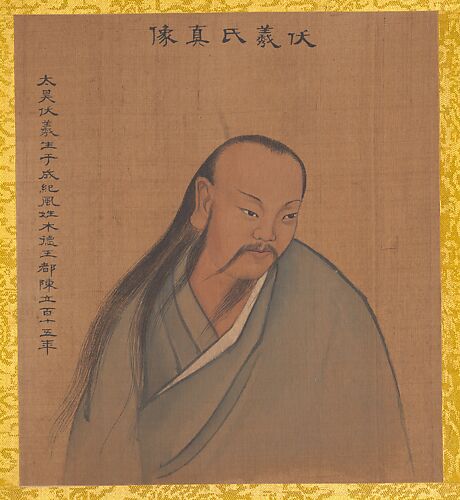 伏羲氏真像
太昊伏羲生于成紀風姓木德王都陳立百十五年